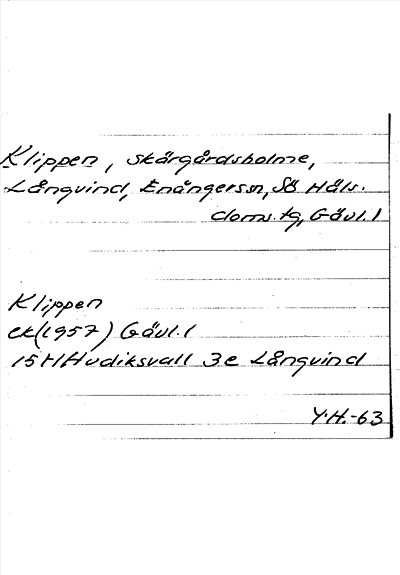 Klippen, skärgårdsholme,
Långvind, Enångers sn, Sö Häls.
doms. tg, Gävl. l
Klippen
ek (1957) Gävl. l
15H Hudiksvall 3e Långvind
Y.H.-63